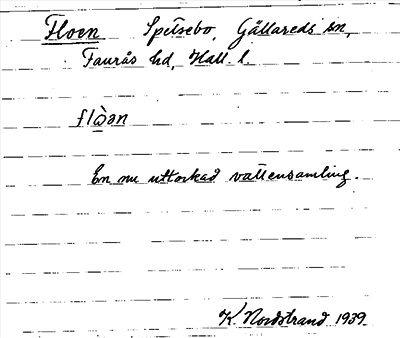 Floen Spetsebo, Gällareds sn,
Faurås hd, Hall. l.
flὼən
En nu uttorkad vattensamling.
K. Nordstrand 1939